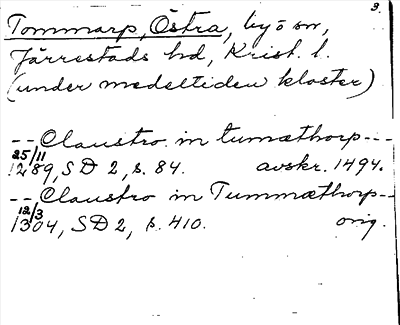 3.
Tommarp, Östra, by o sn,
Järrestads hd, Krist. l.
(under medeltiden kloster)
-- Claustro in tumæthorp ---
25/11
1289, SD 2, s. 84. avskr. 1494.
-- Claustro in Tummæthorp --
12/3
1304, SD 2, s. 410. orig.